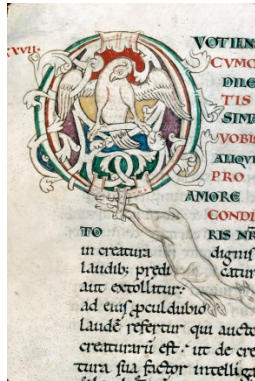 XXVII.
VOTIENS
CUMQ
DILEC
TIS
SIMI
VOBIS
ALIQUI
PRO
AMORE
CONDI
TO RIS NR
in creatura dignis
laudib; predi catur
aut extollitur:
ad eius proculdubio
laudē refertur qui aucto
creaturarū est. ut de cre
tura sua factor intelliga